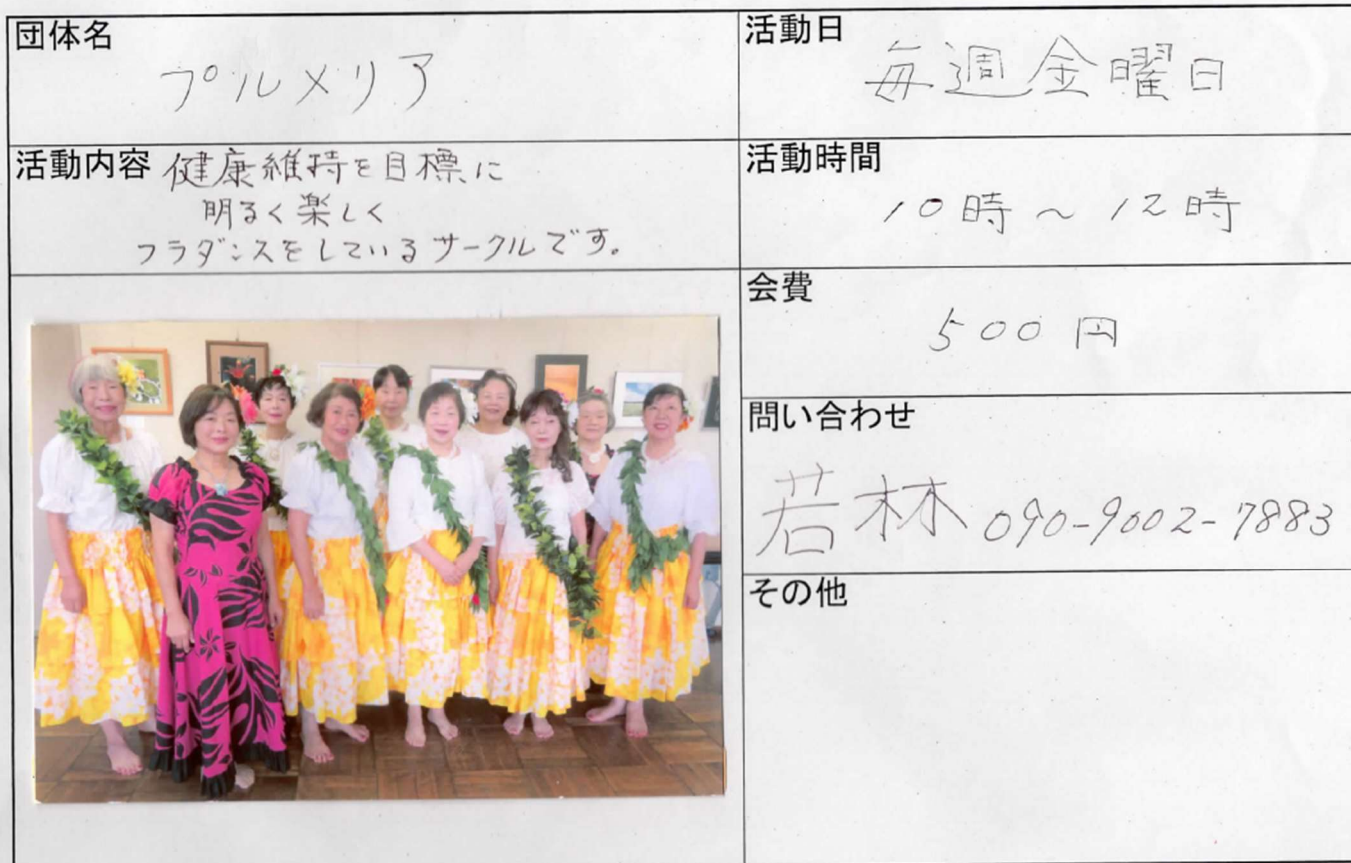 団体名
プルメリア
活動日
毎週金曜日
活動内容 健康維持を目標に
明るく楽しく
フラダンスをしているサークルです。
活動時間
10時～12時
会費
500円
問い合わせ
若林 090-9002-7883
その他